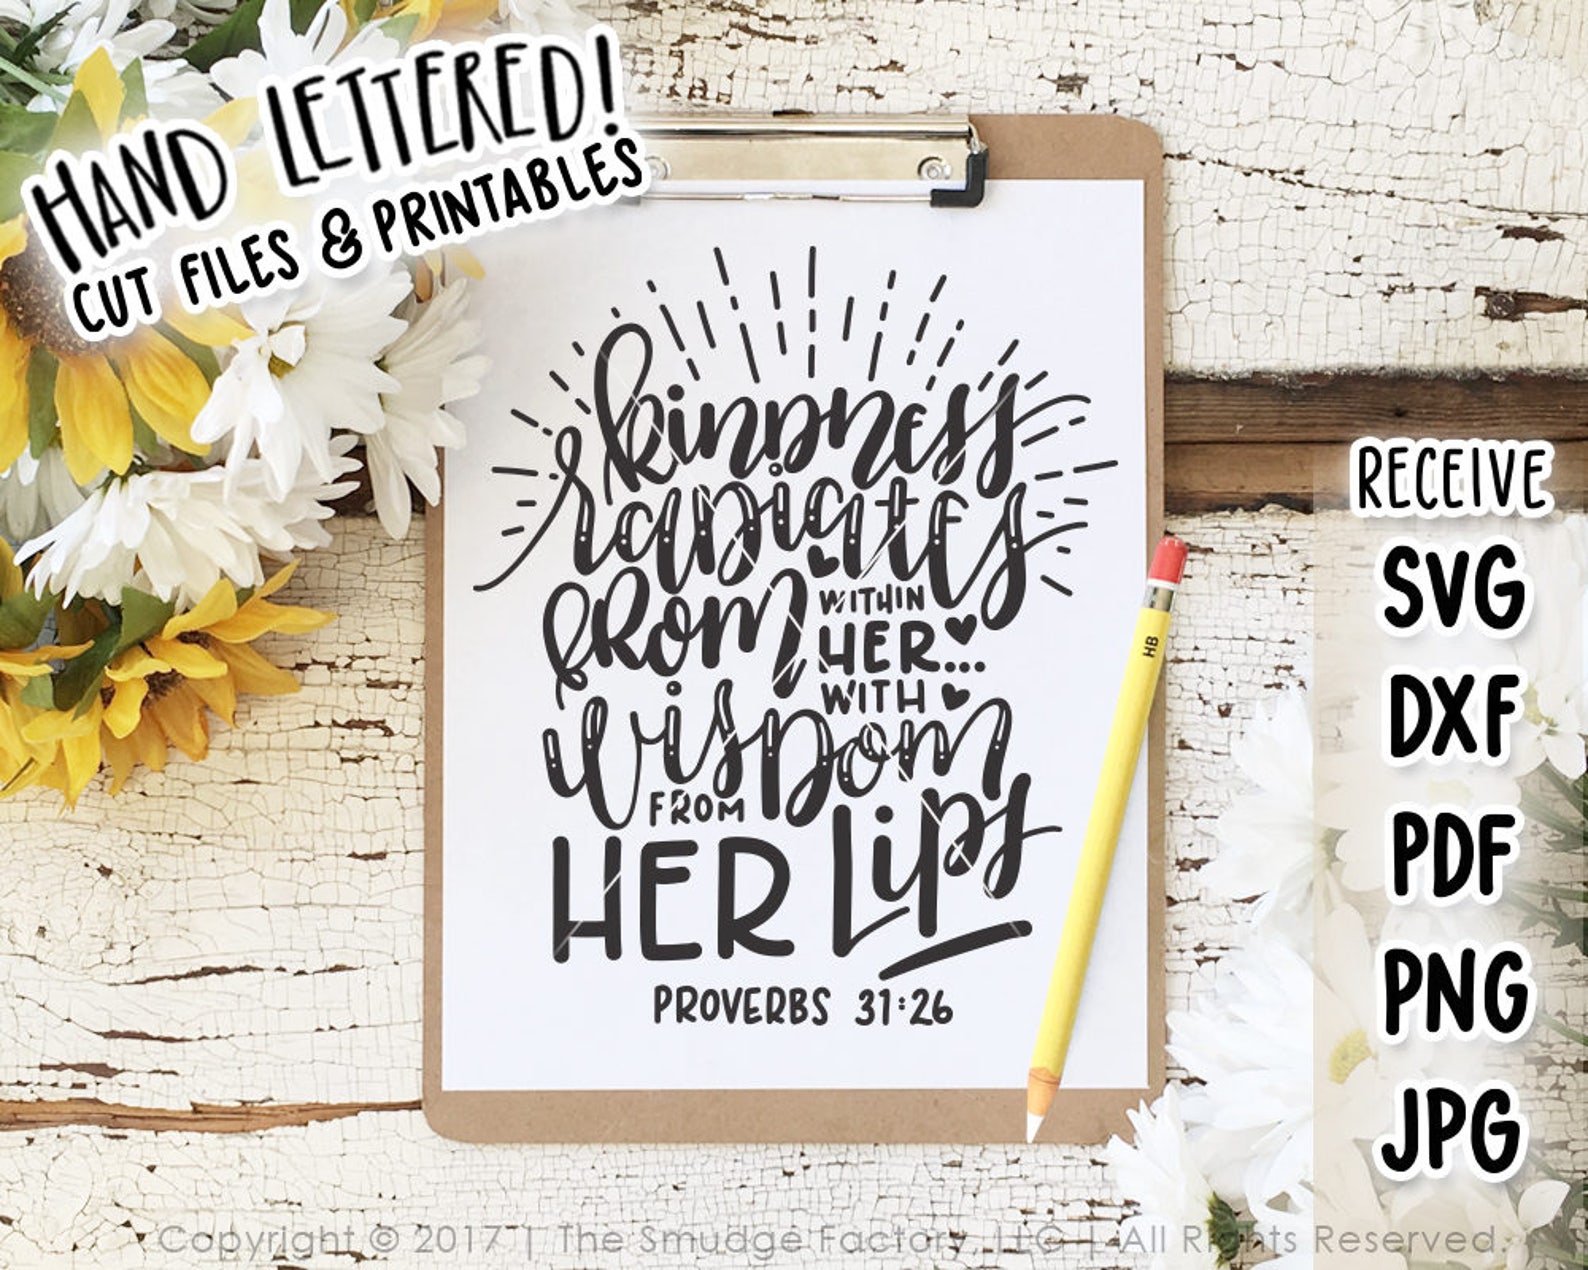 HAND LETTERED!
CUT FILES & PRINTABLES
kindness
radiates
from WITHIN
HER...
WITH
wisdom
FROM
HER Lips
PROVERBS 31:26
RECEIVE
SVG
DXF
PDF
PNG
JPG
HB
Copyright © 2017 | The Smudge Factory, LLC | All Rights Reserved.